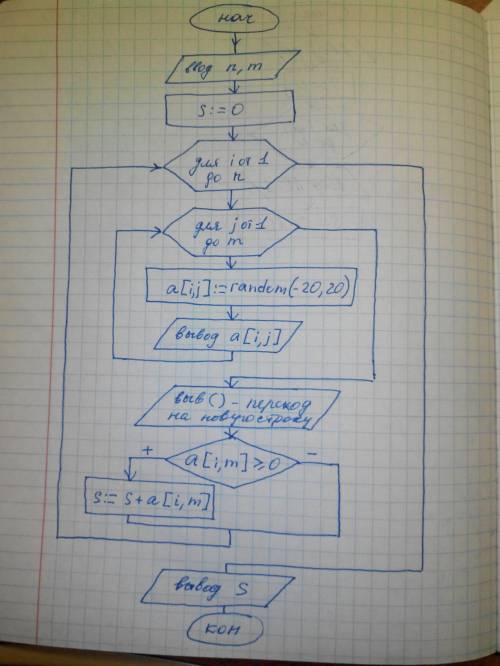 нач
ввод n, m
S:=0
для i от 1
до n
для j от 1
до m
a[i,j]:=random(-20,20)
вывод a[i,j]
выв() - переход
на новую строку
+
a[i,m]≥0
-
S:= S+a[i,m]
вывод S
кон